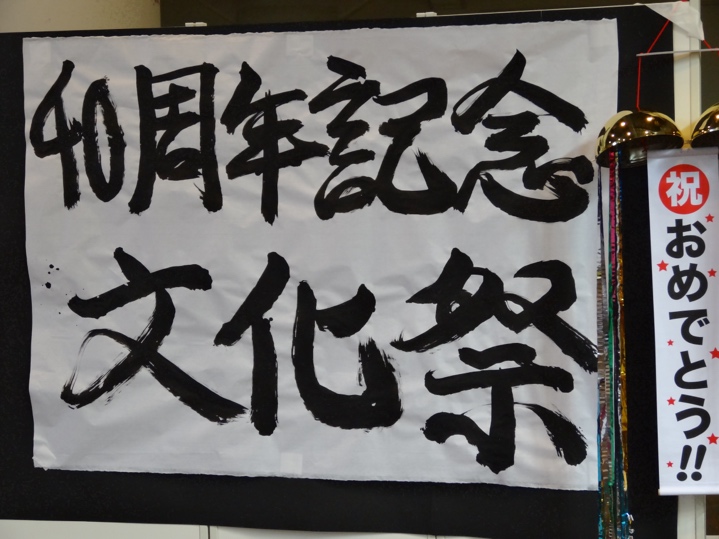 40周年記念
文化祭
祝
おめでとう!!